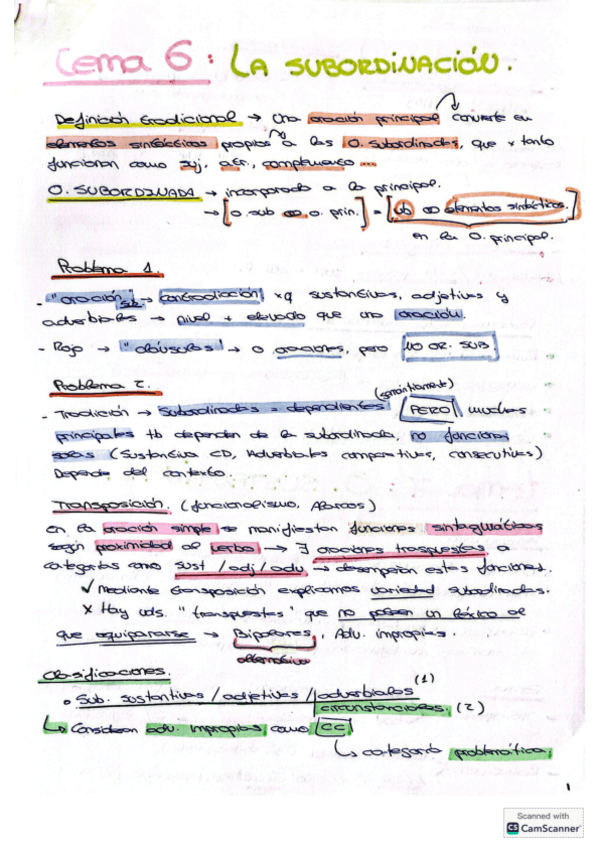 Tema 6: LA SUBORDINACIÓN.
Definición tradicional → Una oración principal convierte en
elementos sintácticos propios a las O. Subordinadas, que x tanto
funcionan como suj, atr., complemento ...
O. SUBORDINADA → incorporada a la principal.
→ [O. sub ∞ o. prin.] = [ub ∞ elementos sintácticos]
en la O. principal.
Problema 1.
- "oración" sub → contradicción, xq sustantivos, adjetivos y
adverbiales → nivel + elevado que una oración.
- Rojo → "cláusulas" → o oraciones, pero NO OR. SUB
Problema 2.
(semánticamente)
- Tradición → Subordinadas = dependientes PERO muchas
principales tb dependen de la subordinada, no funcionan
solas (Sustantiva CD, Adverbiales comparativas, consecutivas)
Depende del contexto.
Transposición. (funcionalismo, Alarcos)
En la oración simple se manifiestan funciones sintagmáticas
según proximidad al verbo → ∃ oraciones traspuestas a
categorías como sust / adj / adv → desempeñan estas funciones.
✓ Mediante transposición explicamos variedad subordinadas.
✗ Hay uds. "transpuestas" que no poseen un léxico al
que equipararse → Bipolares, Adv. impropias.
alternativa
Clasificaciones.
• Sub. sustantivas / adjetivas / adverbiales (1)
circunstanciales. (2)
↳ Consideran adv. impropias como CC
↳ categoría problemática.
1
Scanned with
CS CamScanner